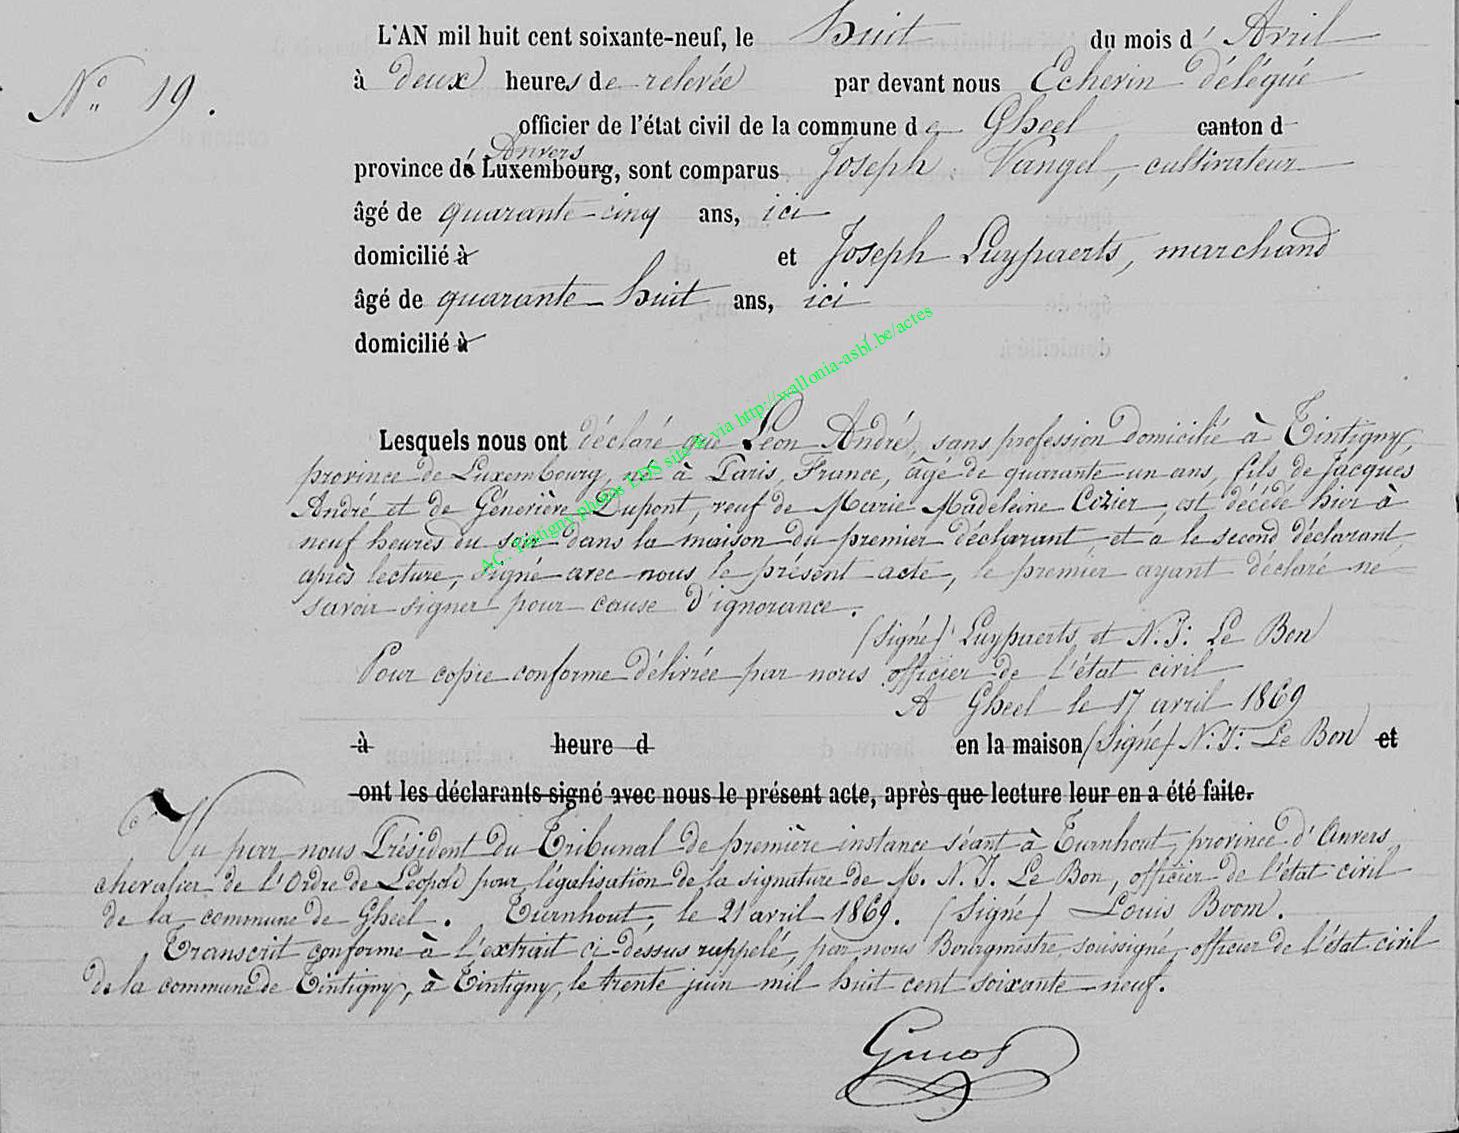 L'AN mil huit cent soixante-neuf, le huit du mois d' Avril
N° 19.
à deux heures de relevée par devant nous Echevin délégué
officier de l'état civil de la commune de Gheel canton d
Anvers
province de Luxembourg, sont comparus Joseph Vangel, cultivateur
âgé de quarante-cinq ans, ici
domicilié à et Joseph Luypaerts, marchand
âgé de quarante-huit ans, ici
domicilié à
Lesquels nous ont déclaré que Léon André, sans profession domicilié à Tintigny,
province de Luxembourg, né à Paris, France, âgé de quarante un ans, fils de Jacques
André et de Génevière Dupont, veuf de Marie Madeleine Cozier, est décédé hier à
neuf heures du soir dans la maison du premier déclarant et a le second déclarant,
après lecture, signé avec nous le présent acte, le premier ayant déclaré ne
savoir signer pour cause d'ignorance.
(Signé) Luypaerts et N. J. Le Bon
Pour copie conforme délivrée par nous officier de l'état civil
A Gheel le 17 avril 1869
à heure d en la maison (Signé) N. J. Le Bon et
ont les déclarants signé avec nous le présent acte, après que lecture leur en a été faite.
Vu par nous Président du Tribunal de première instance séant à Turnhout, province d'Anvers,
chevalier de l'Ordre de Léopold pour légalisation de la signature de M. N. J. Le Bon, officier de l'état civil
de la commune de Gheel. Turnhout, le 21 avril 1869. (Signé) Louis Boom.
Transcrit conforme à l'extrait ci-dessus rappelé, par nous Bourgmestre, soussigné, officier de l'état civil
de la commune de Tintigny, à Tintigny, le trente juin mil huit cent soixante-neuf.
AC. Tintigny photos LDS site via http://wallonia-asbl.be/actes